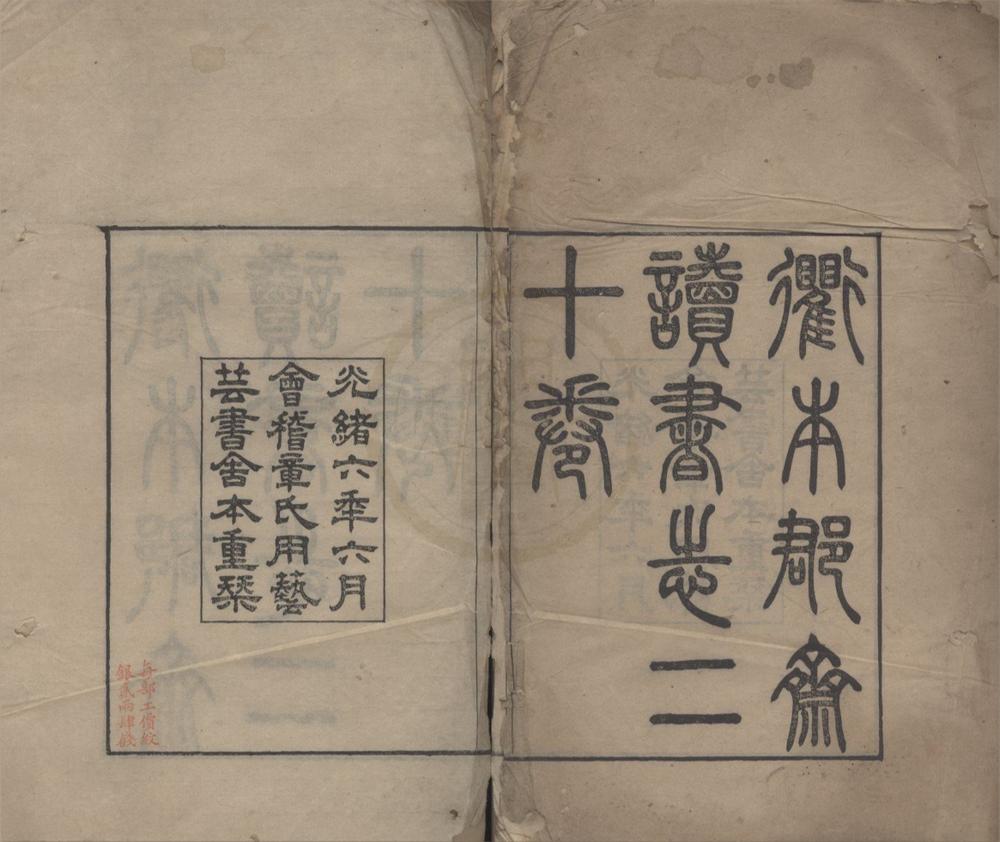 衢本郡齋
讀書志二
十卷
光緒六年六月
會稽章氏用藝
芸書舍本重琹
每部工價紋
銀貳兩肆錢